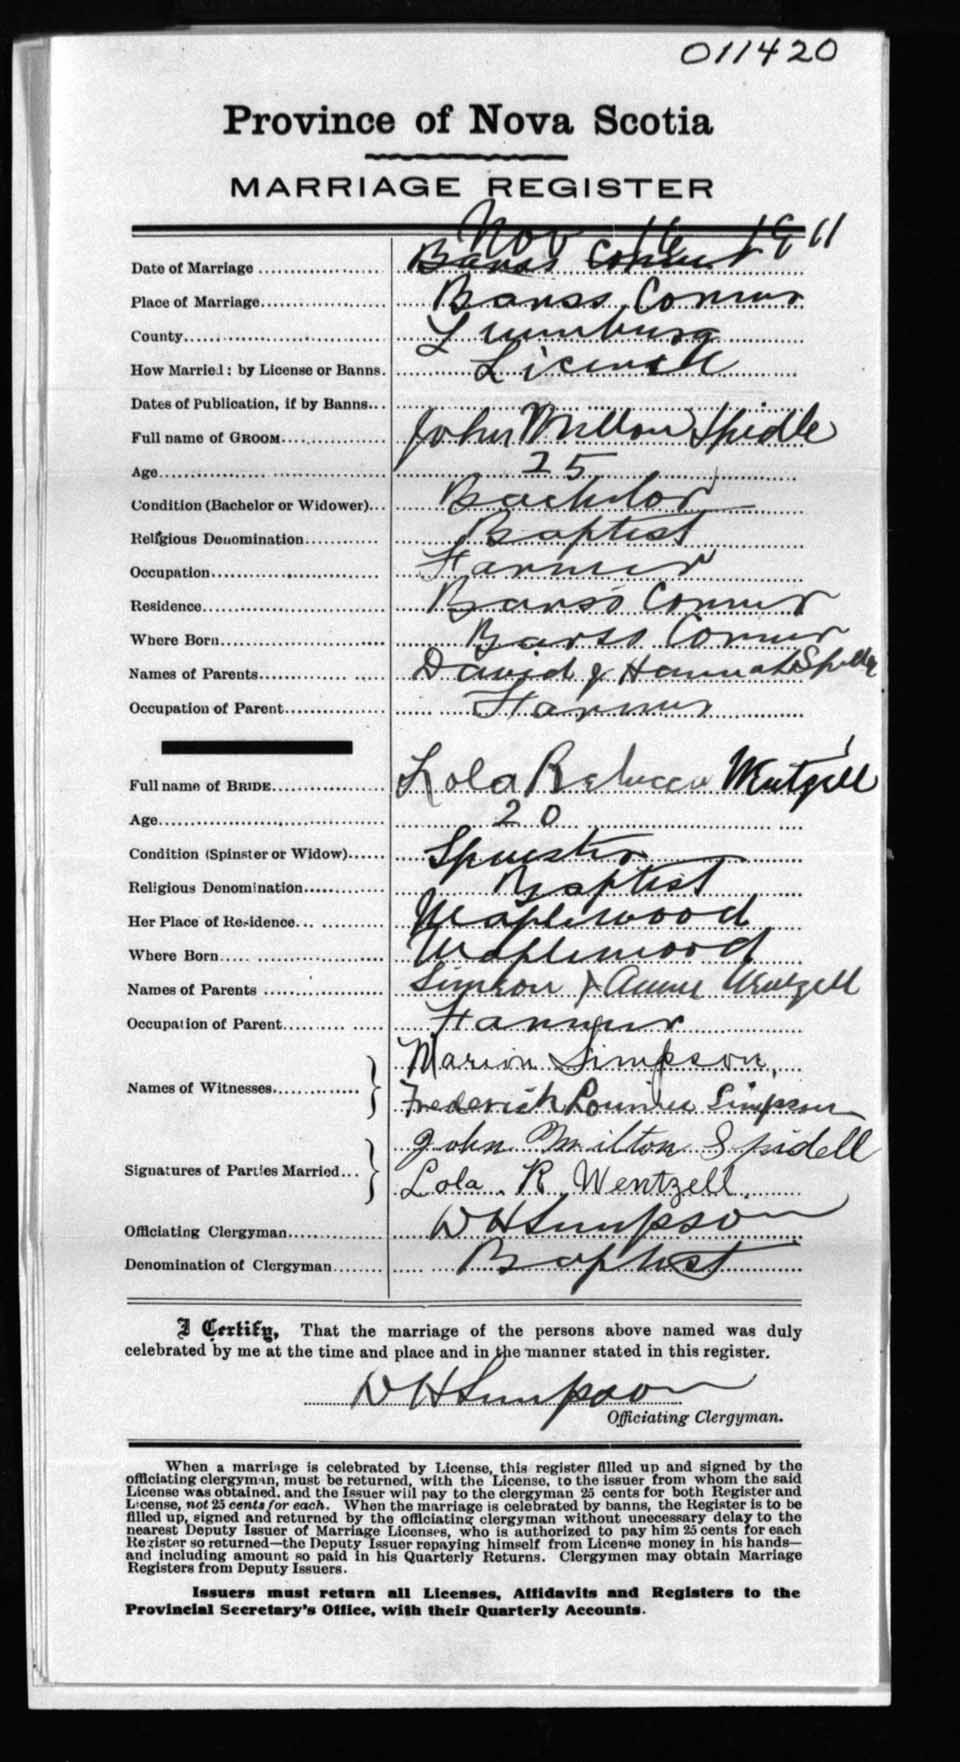 011420
Province of Nova Scotia
MARRIAGE REGISTER
Nov 16 1911
Date of Marriage Barss Corner
Place of Marriage Barss Corner
County Lunenburg
How Married: by License or Banns. License
Dates of Publication, if by Banns
Full name of GROOM John Milton Spidle
Age 25
Condition (Bachelor or Widower) Bachelor
Religious Denomination Baptist
Occupation Farmer
Residence Barss Corner
Where Born Barss Corner
Names of Parents David & Hannah Spidle
Occupation of Parent Farmer
Full name of BRIDE Lola Rebecca Wentzell
Age 20
Condition (Spinster or Widow) Spinster
Religious Denomination Baptist
Her Place of Residence Maplewood
Where Born Maplewood
Names of Parents Simeon & Annie Wentzell
Occupation of Parent Farmer
Names of Witnesses Marion Simpson,
Frederick Simpson
Signatures of Parties Married John Milton Spidell
Lola R Wentzell
Officiating Clergyman W H Simpson
Denomination of Clergyman Baptist
I Certify, That the marriage of the persons above named was duly
celebrated by me at the time and place and in the manner stated in this register.
W H Simpson
Officiating Clergyman.
When a marriage is celebrated by License, this register filled up and signed by the
officiating clergyman, must be returned, with the License, to the issuer from whom the said
License was obtained, and the Issuer will pay to the clergyman 25 cents for both Register and
License, not 25 cents for each. When the marriage is celebrated by banns, the Register is to be
filled up, signed and returned by the officiating clergyman without unnecessary delay to the
nearest Deputy Issuer of Marriage Licenses, who is authorized to pay him 25 cents for each
Register so returned—the Deputy Issuer repaying himself from License money in his hands—
and including amount so paid in his Quarterly Returns. Clergymen may obtain Marriage
Registers from Deputy Issuers.
Issuers must return all Licenses, Affidavits and Registers to the
Provincial Secretary's Office, with their Quarterly Accounts.